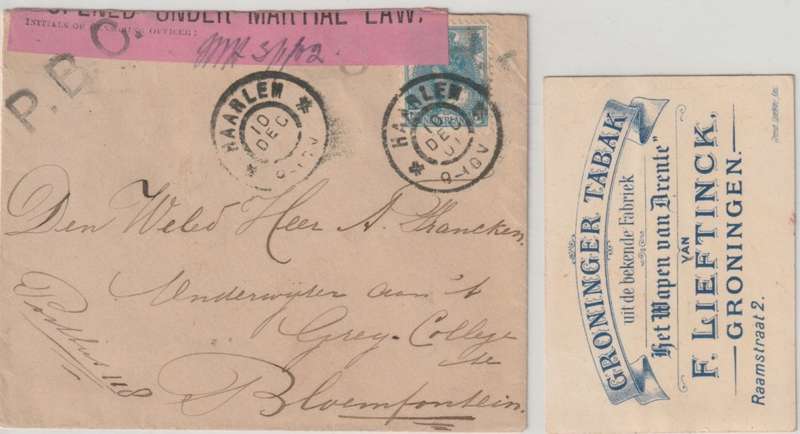 OPENED UNDER MARTIAL LAW.
INITIALS OF OFFICER:
3/1/02
P.B.C.
HAARLEM
10
DEC
9-10V
HAARLEM
10
DEC
01
9-10V
Den Weled Heer A. Francken.
Onderwijzer aan 't
Grey-College
te
Bloemfontein.
Postbus 118
GRONINGER TABAK
uit de bekende Fabriek
"Het Wapen van Drente"
VAN
F. LIEFTINCK,
GRONINGEN.
Raamstraat 2.